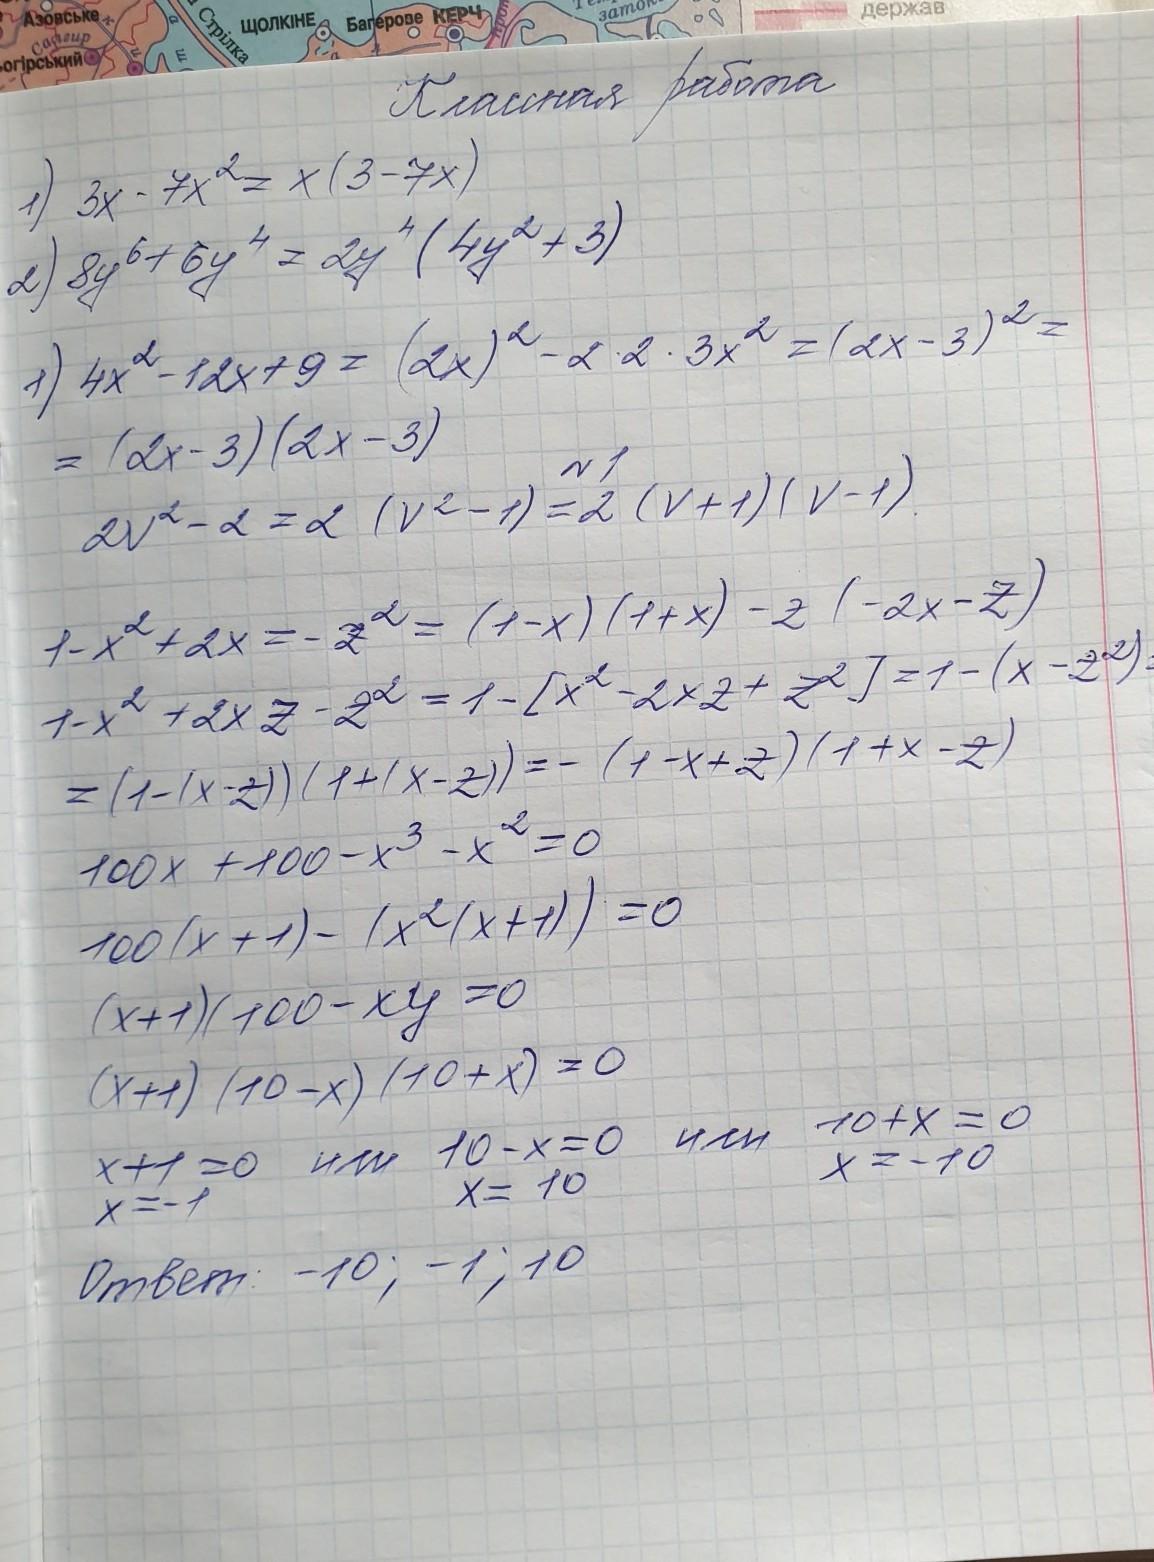 Азовське
Салгир
ЩОЛКІНЕ
Багерове
КЕРЧ
Стрілка
затока
держав
огірський
Классная работа
1) 3x - 7x² = x (3 - 7x)
2) 8y⁶ + 6y⁴ = 2y⁴ (4y² + 3)
1) 4x² - 12x + 9 = (2x)² - 2 · 2 · 3x² = (2x - 3)² =
= (2x - 3) (2x - 3)
№ 1
2v² - 2 = 2 (v² - 1) = 2 (v + 1) (v - 1).
1 - x² + 2x = - z² = (1 - x) (1 + x) - z (-2x - z)
1 - x² + 2xz - z² = 1 - [x² - 2xz + z²] = 1 - (x - z²) =
= (1 - (x - z)) (1 + (x - z)) = - (1 - x + z) (1 + x - z)
100x + 100 - x³ - x² = 0
100 (x + 1) - (x² (x + 1)) = 0
(x + 1) (100 - xy = 0
(x + 1) (10 - x) (10 + x) = 0
x + 1 = 0 или 10 - x = 0 или 10 + x = 0
x = -1 x = 10 x = -10
Ответ: -10; -1; 10